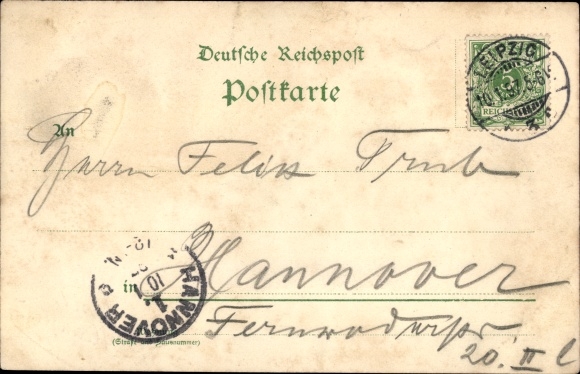 Deutsche Reichspost
Postkarte
LEIPZIG
10.1.97
REICHSPOST
An
Herrn Felix
in Hannover
HANNOVER
10 1
1
(Straße und Hausnummer)
20. II l